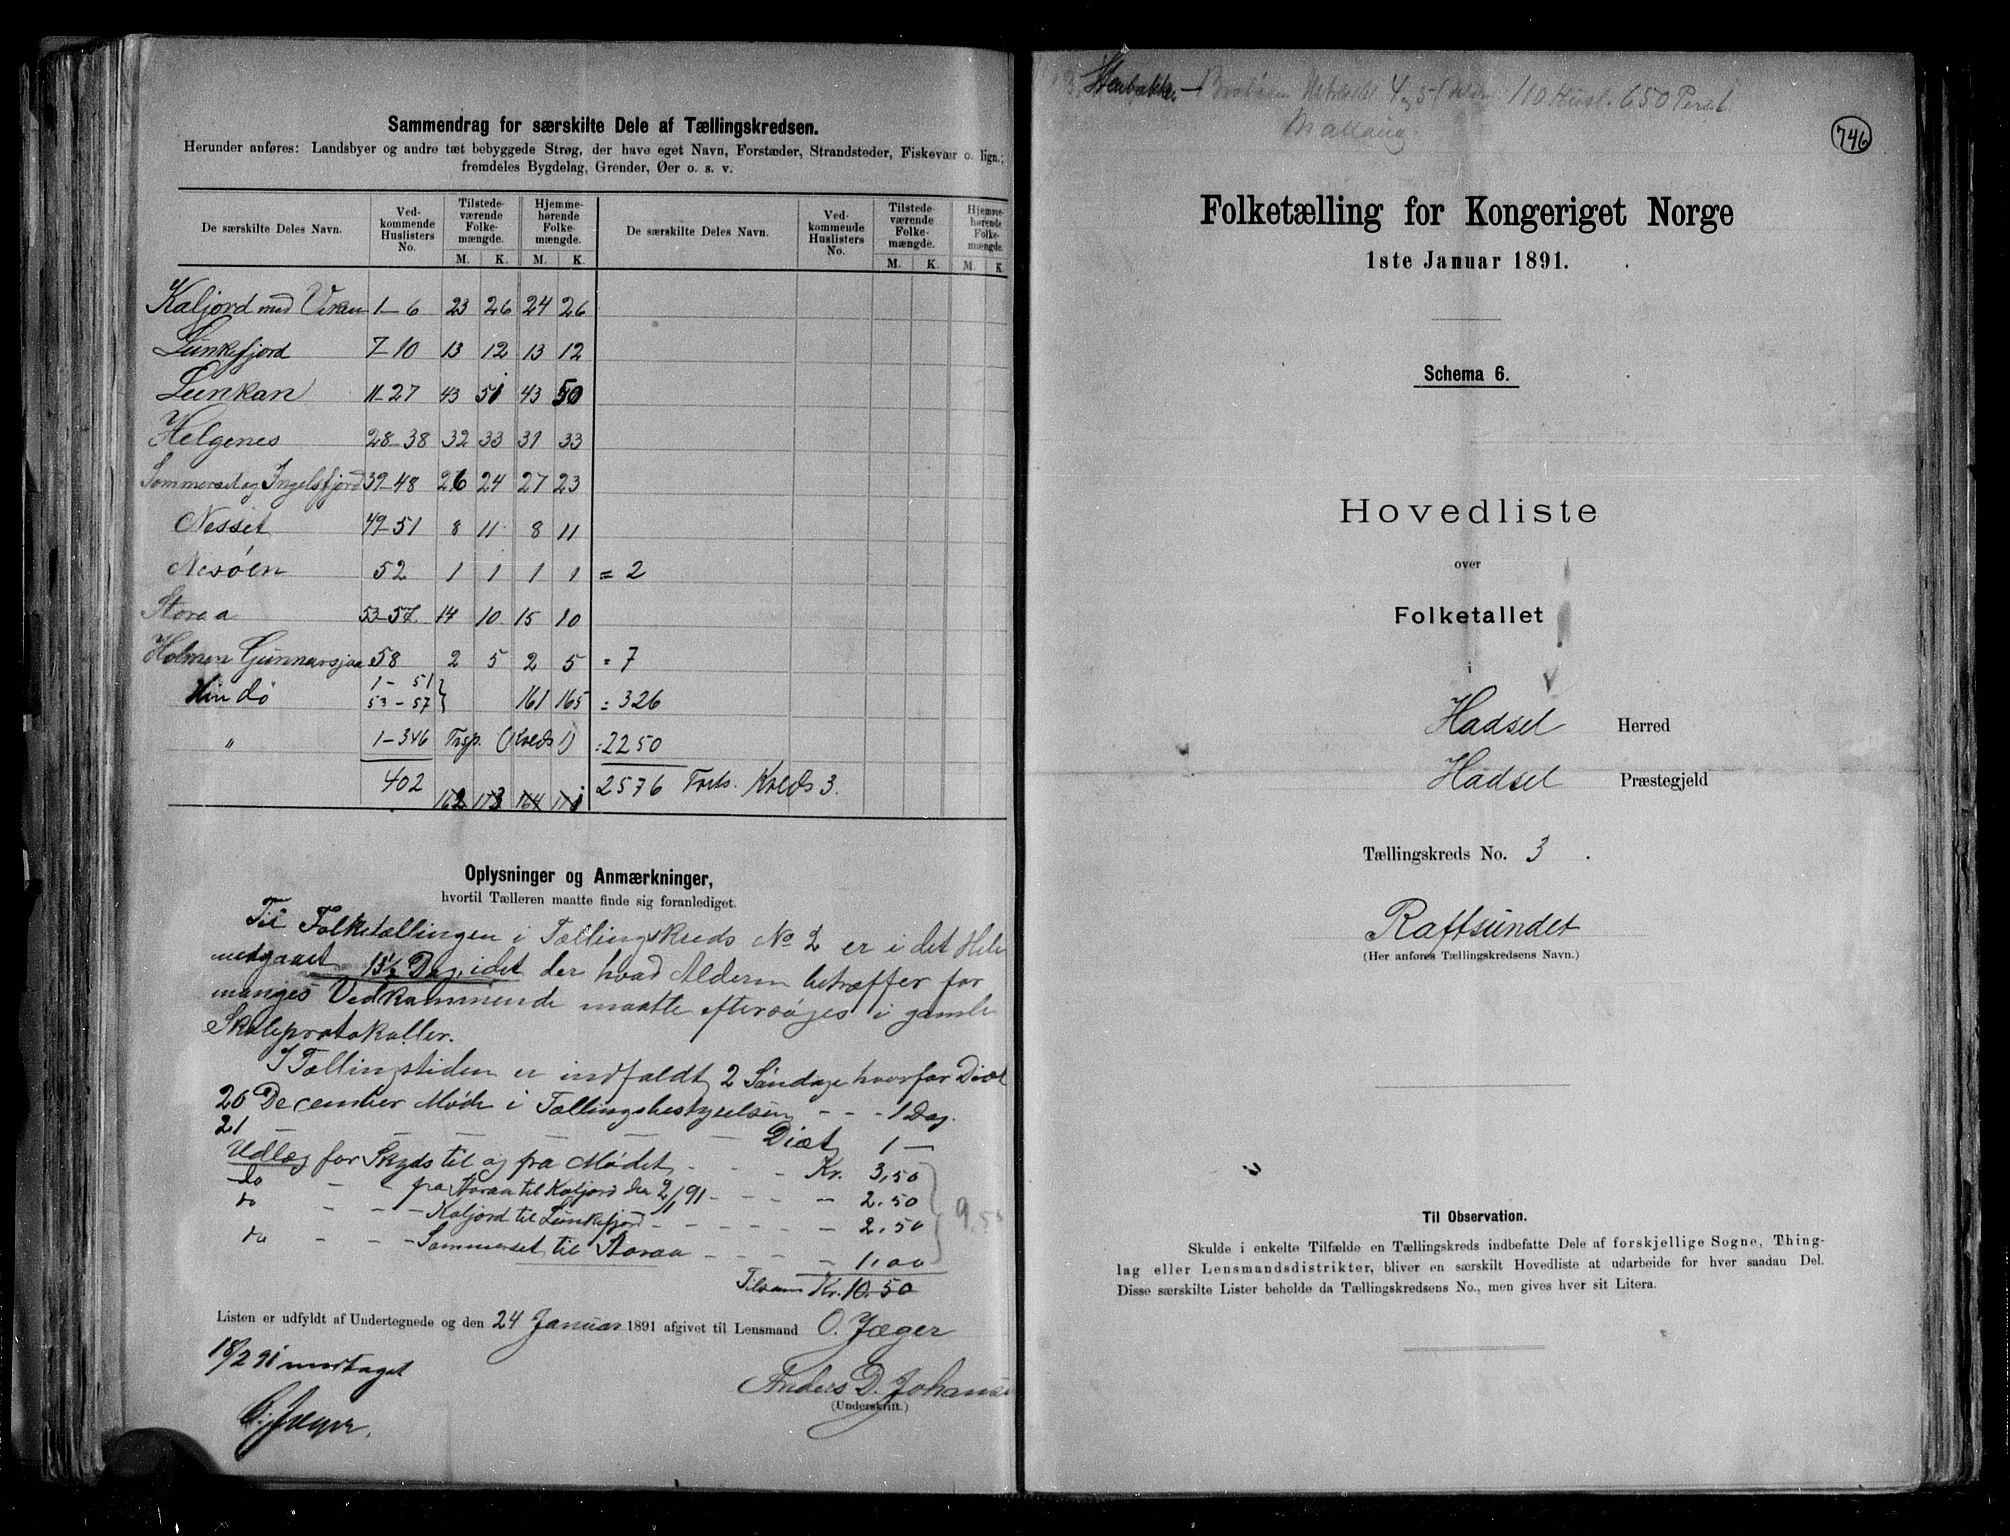 Sammendrag for særskilte Dele af Tællingskredsen.
Herunder anføres: Landsbyer og andre tæt bebyggede Strøg, der have eget Navn, Forstæder, Strandsteder, Fiskevær o. lign.;
fremdeles Bygdelag, Grender, Øer o. s. v.
De særskilte Deles Navn. Ved-kommende Huslisters No. Tilstede-værende Folke-mængde. Hjemme-hørende Folke-mængde. De særskilte Deles Navn. Ved-kommende Huslisters No. Tilstede-værende Folke-mængde. Hjemme-hørende Folke-mængde.
M. K. M. K. M. K. M. K.
Kaljord med Viran 1-6 23 26 24 26
Lunkefjord 7-10 13 12 13 12
Lunkan 11-27 43 51 43 50
Helgenes 28-38 32 33 31 33
Sommerset og Ingelsfjord 39-48 26 24 27 23
Nesset 49-51 8 11 8 11
Nesøen 52 1 1 1 1 = 2
Storaa 53-57 14 10 15 10
Holmen Gunnarsjaa 58 2 5 2 5 = 7
Hindø 1-51 53-57 } 161 165 = 326
" 1-346 Trsp. (Kreds 1) = 2250
402 162 173 164 171 2576 Forts. Kreds 3.
Oplysninger og Anmærkninger,
hvortil Tælleren maatte finde sig foranlediget.
Til Folketællingen i Tællingskreds No 2 er i det Hele
medgaaet 15½ Dag, idet der hvad Alderen betræffer for
manges Vedkommende maatte eftersøges i gamle
Skoleprotokoller.
I Tællingstiden er indfaldt 2 Søndage hvorfor Diæt
20 December Møde i Tællingsbestyrelsen - - - 1 Dag.
21 — — — Diæt 1 —
Udlæg for Skyds til og fra Mødet - - - Kr. 3,50
do - - fra Storaa til Kaljord den 2/1 91 - - - 2.50
do - - - Kaljord til Lunkefjord - - - - 2,50
do - - - Sommerset til Storaa - - - 1,00
9.50
Tilsam Kr. 10.50
Listen er udfyldt af Undertegnede og den 24 Januar 1891 afgivet til Lensmand O. Jæger
18/2 91 modtaget
Anders D. Johanse
(Underskrift.)
O. Jæger.
Stenbakken — 4 og 5 110 Husl. 650 Pers.
746
Folketælling for Kongeriget Norge
1ste Januar 1891.
Schema 6.
Hovedliste
over
Folketallet
i
Hadsel Herred
Hadsel Præstegjeld
Tællingskreds No. 3.
Raftsundet
(Her anføres Tællingskredsens Navn.)
Til Observation.
Skulde i enkelte Tilfælde en Tællingskreds indbefatte Dele af forskjellige Sogne, Thing-
lag eller Lensmandsdistrikter, bliver en særskilt Hovedliste at udarbeide for hver saadan Del.
Disse særskilte Lister beholde da Tællingskredsens No., men gives hver sit Litera.